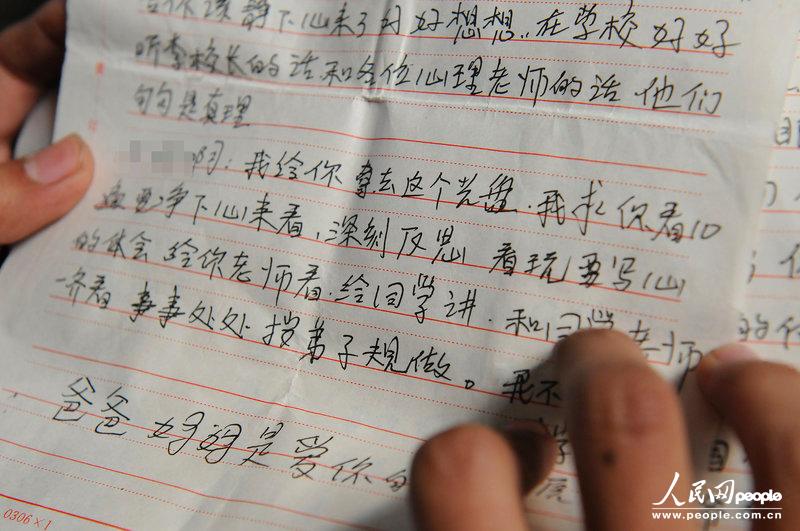 你该静下心来了对好想想..在学校好好
听李校长的话和各位心理老师的话他们
句句是真理
啊:我给你拿去这个光盘.我求你看10
遍要净下心来看,深刻反思 看玩要写心
的体会给你老师看.给同学讲.和同学老师
一齐看 事事处处按弟子规做。我不
爸爸妈妈是爱你的
0306×1
人民网 people
www.people.com.cn